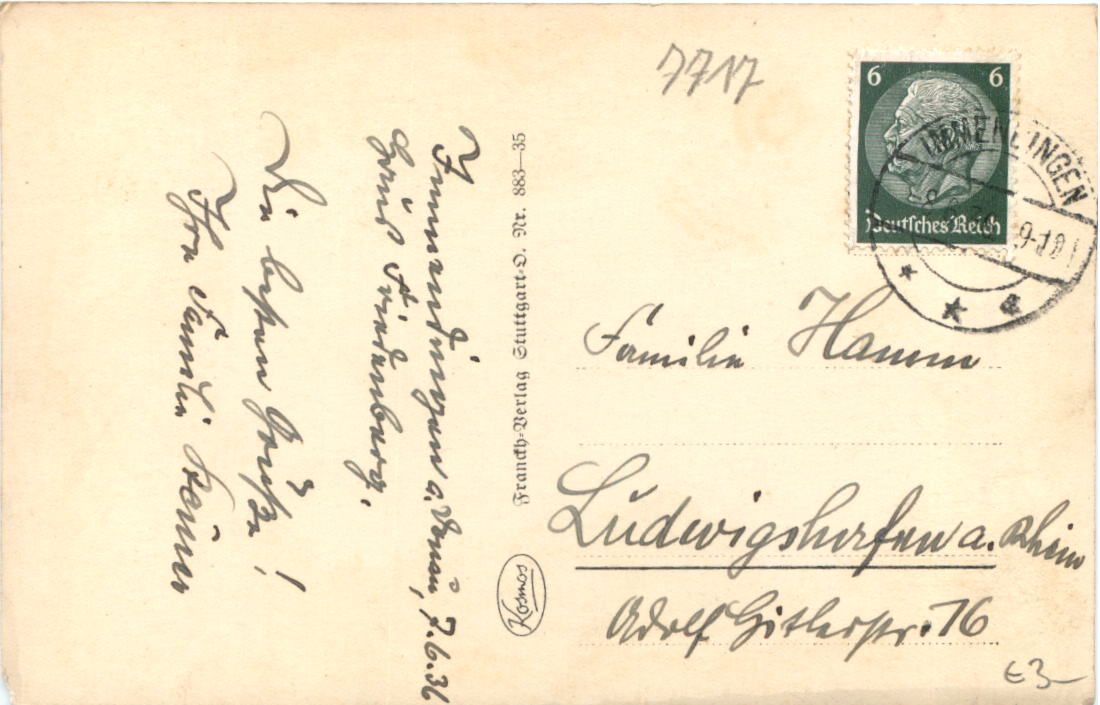 7717
6 6
Deutsches Reich
IMMENDINGEN
9-10
Immendingen a. Donau, 7.6.36
Haus Friedenberg.
Die besten Grüße!
Ihre Familie
Franckh-Verlag Stuttgart-O. Nr. 883—35
Kosmos
Familie Hamm
Ludwigshafen a. Rhein
Adolf Hitlerstr. 76
€3-